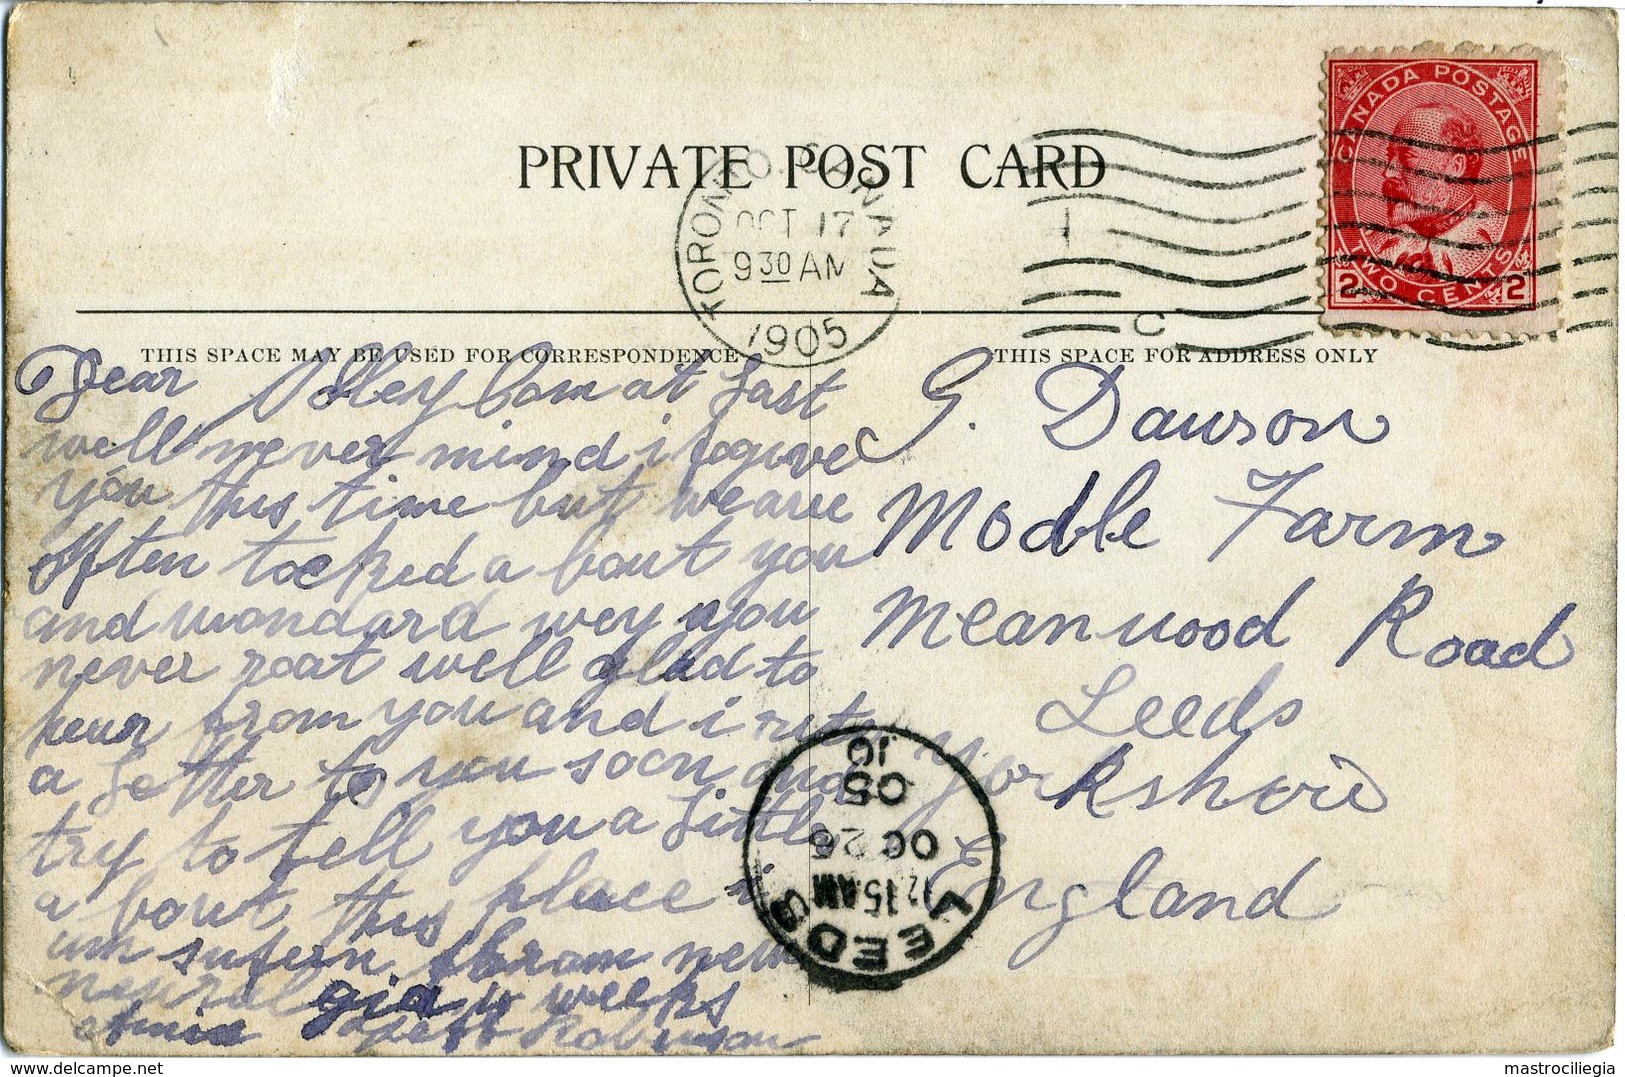 PRIVATE POST CARD
CANADA POSTAGE
2 TWO CENTS 2
TORONTO. CANADA
OCT 17
9 30 AM
1905
C
THIS SPACE MAY BE USED FOR CORRESPONDENCE
THIS SPACE FOR ADDRESS ONLY
Dear at last
well never mind i fogive
you this time but we are
often tocked a bout you
and wondard wey you
never roat well glad to
hear from you and i
a letter to you soon and
try to tell you a little
a bout this place i
um sufern from
neural weeks
Robinson
G. Dawson
Modle Farm
Meanwood Road
Leeds
Yorksheir
England
LEEDS
12.15 AM
OC 26
05
10
mastrociliegia